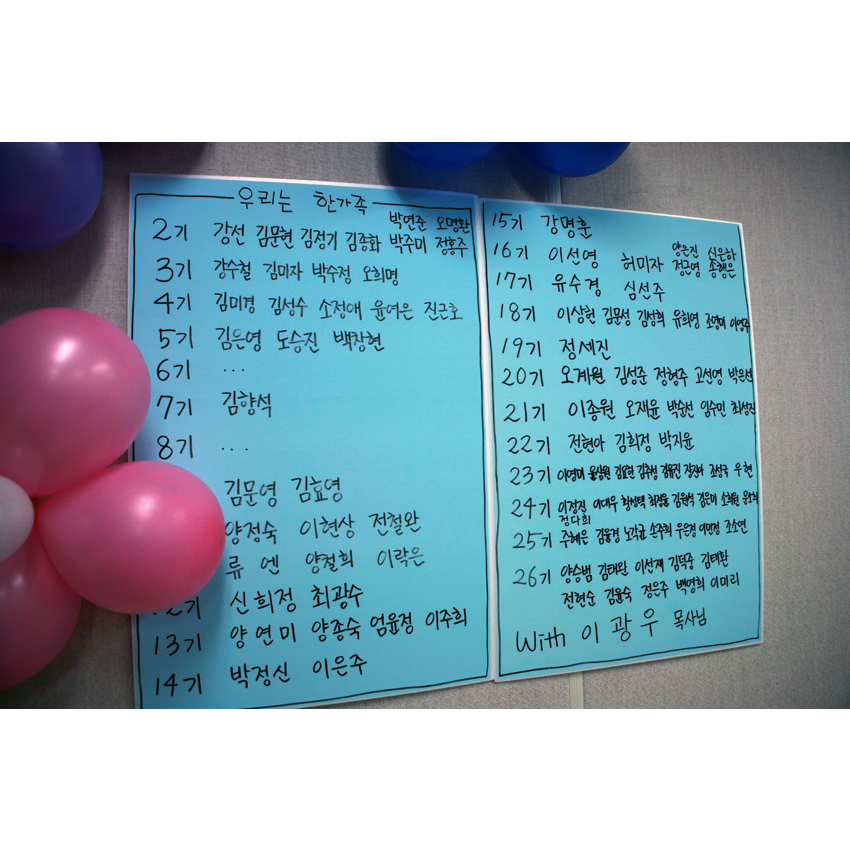 우리는 한가족
박연준 오명환
2기 강선 김문현 김정기 김종화 박주미 정홍주
3기 강수철 김미자 박수정 오희명
4기 김미경 김성수 소정애 윤여은 진근호
5기 김은영 도승진 백창현
6기 ...
7기 김향석
8기 ...
김문영 김효영
양정숙 이현상 전철완
류 엔 양철희 이락은
12기 신희정 최광수
13기 양연미 양종숙 엄윤정 이주희
14기 박정신 이은주
15기 강명훈
16기 이선영 허미자 양은진 신은하
정근영 송행은
17기 유수경 심선주
18기 이상헌 김문성 김성희 유희영 조영미 이영주
19기 정세진
20기 오계원 김성준 정형주 고선영 박은선
21기 이종원 오재윤 박순선 임수민 최성진
22기 전현아 김희정 박지윤
23기 이영미 김효현 김주성 김유진 조성국 우현
24기 이경진 이대우 황성택 김원석 김은미 소희원
정다희
25기 주혜은 김용경 노각균 손주희 우은정 이민정 조소연
26기 양승범 김태완 이선재 김덕중 김태환
전현순 김윤숙 정은주 백영희 이미리
With 이 광 우 목사님